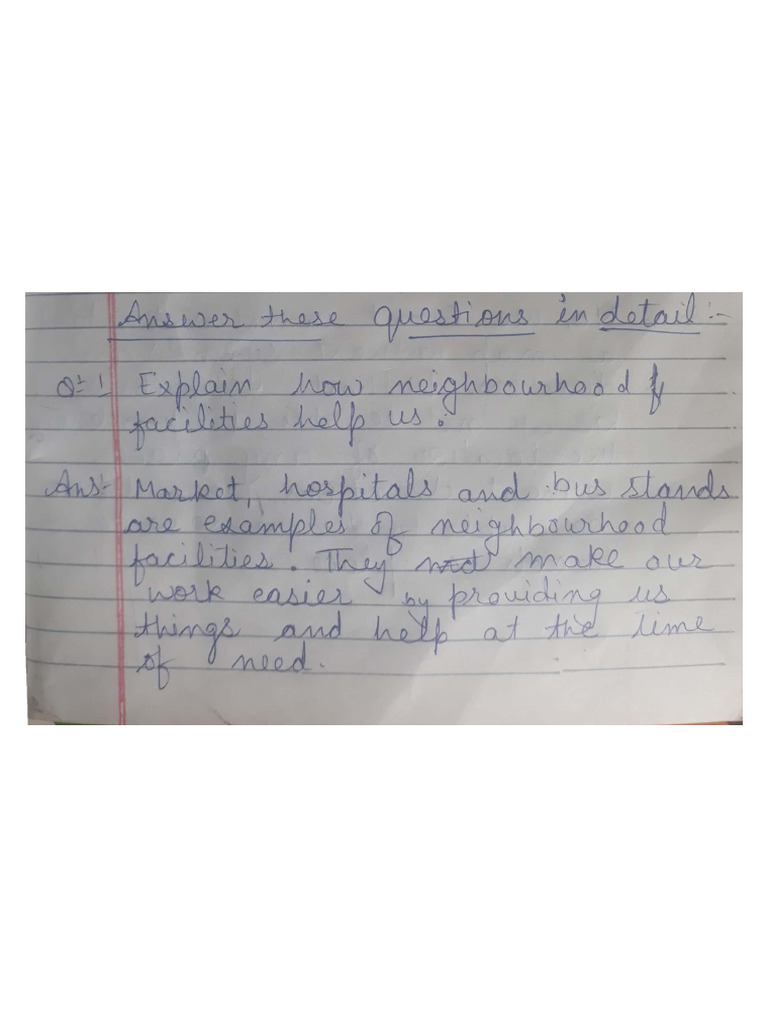 Answer these questions in detail :-
Q=1 Explain how neighbourhood
facilities help us.
Ans:- Market, hospitals and bus stands
are examples of neighbourhood
facilities. They make our
work easier by providing us
things and help at the time
of need.